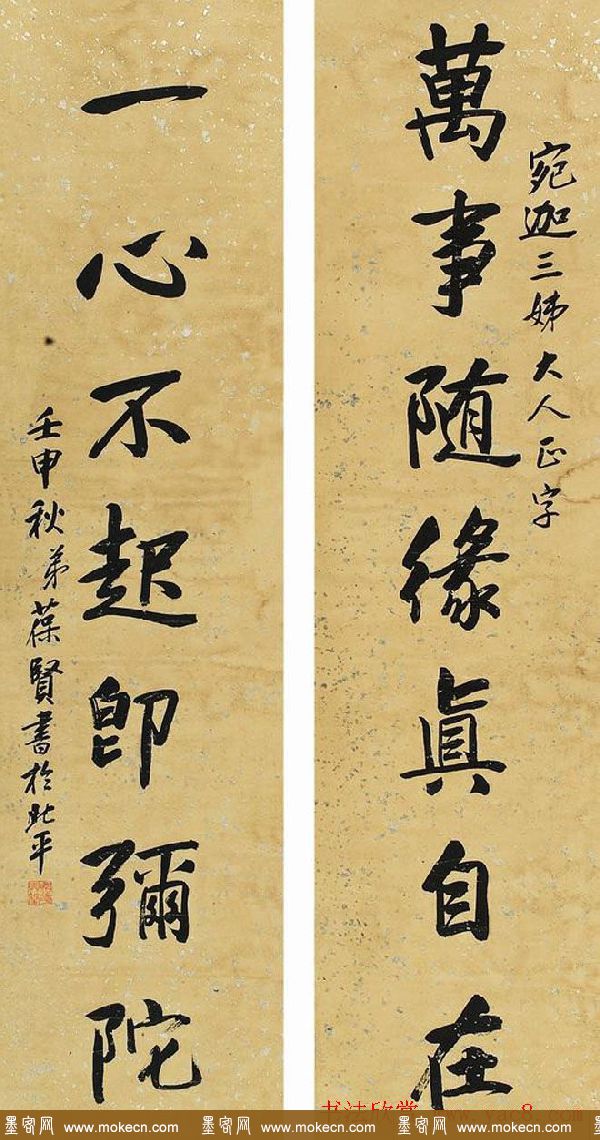 宛迦三姊大人正字
萬事随緣真自在
一心不起即彌陀
壬申秋弟葆賢書於北平
书法欣赏 www.yac8.com
墨客网 www.mokecn.com 墨客网 www.mokecn.com 墨客网 www.mokecn.com